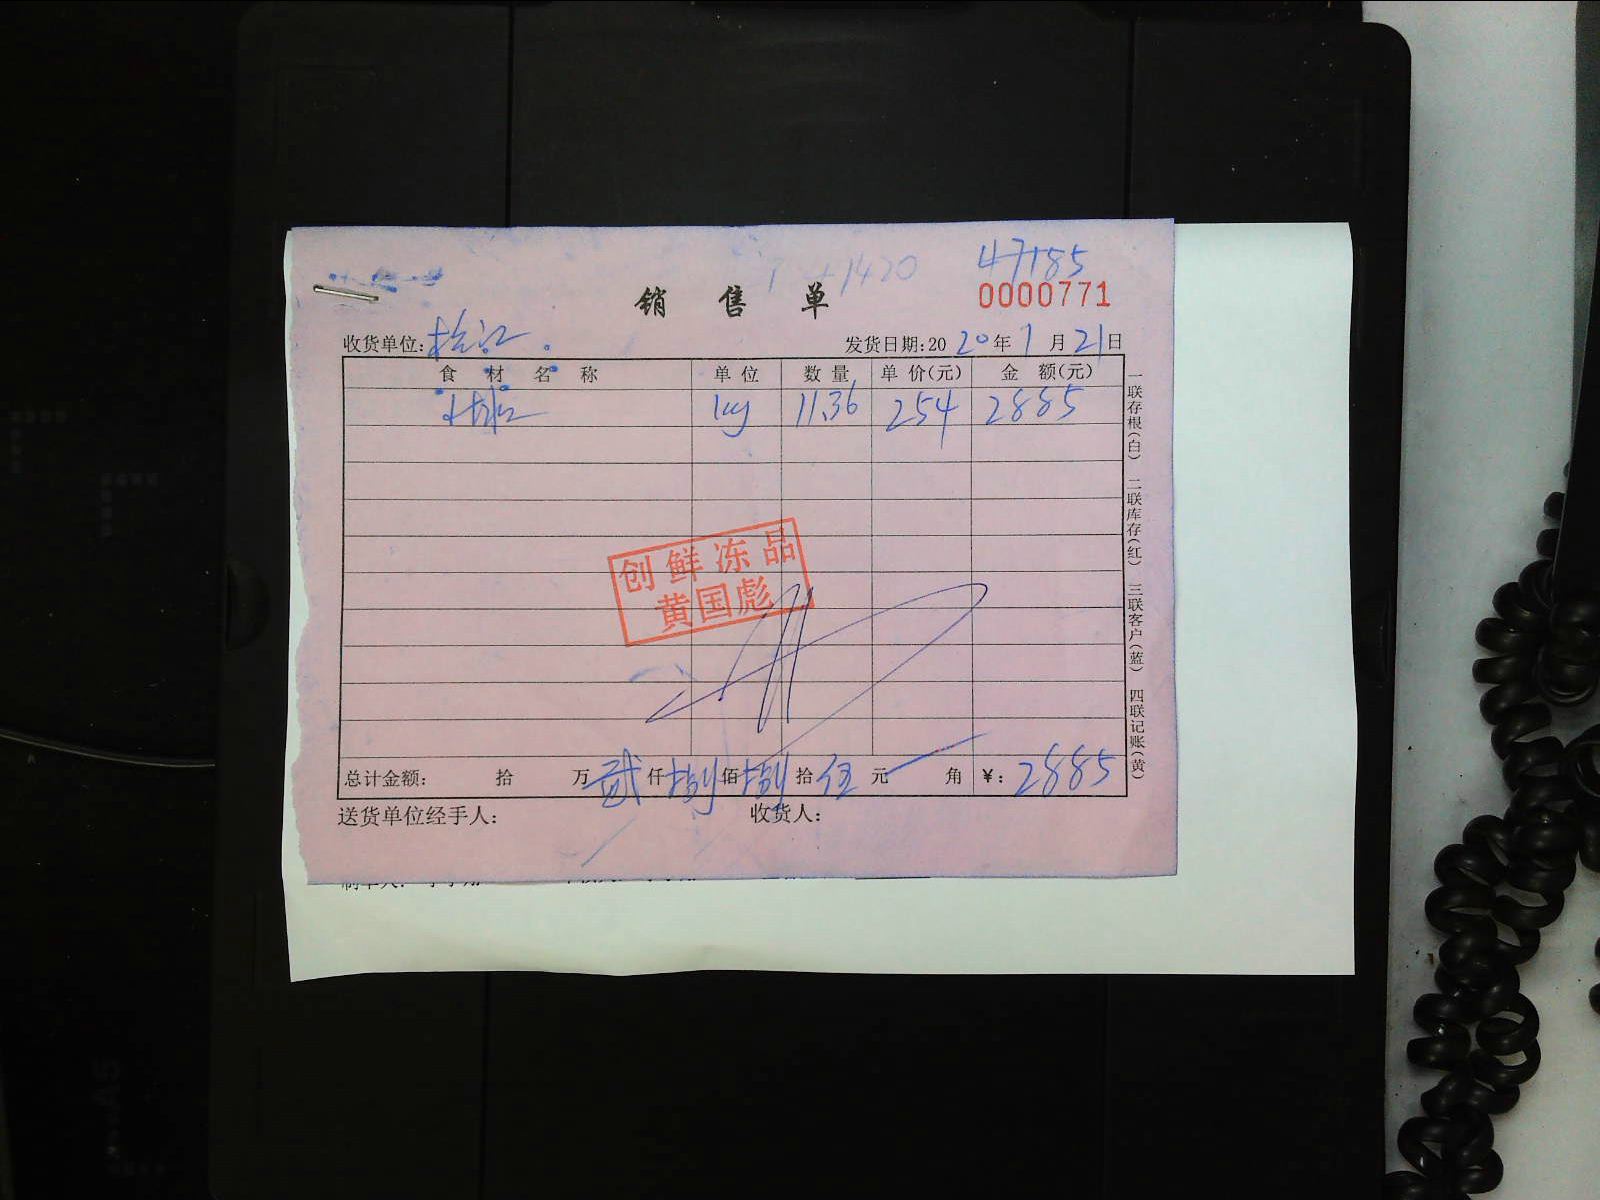 47185
销售单
0000771
收货单位: 松江
发货日期:2020年1月21日
食材名称 单位 数量 单价(元) 金额(元)
kg 11.36 254 2885
创鲜冻品
黄国彪
总计金额: 拾 万 贰 仟 捌 佰 捌 拾 伍 元 角 ¥: 2885
送货单位经手人: 收货人:
一联存根(白) 二联库存(红) 三联客户(蓝) 四联记账(黄)